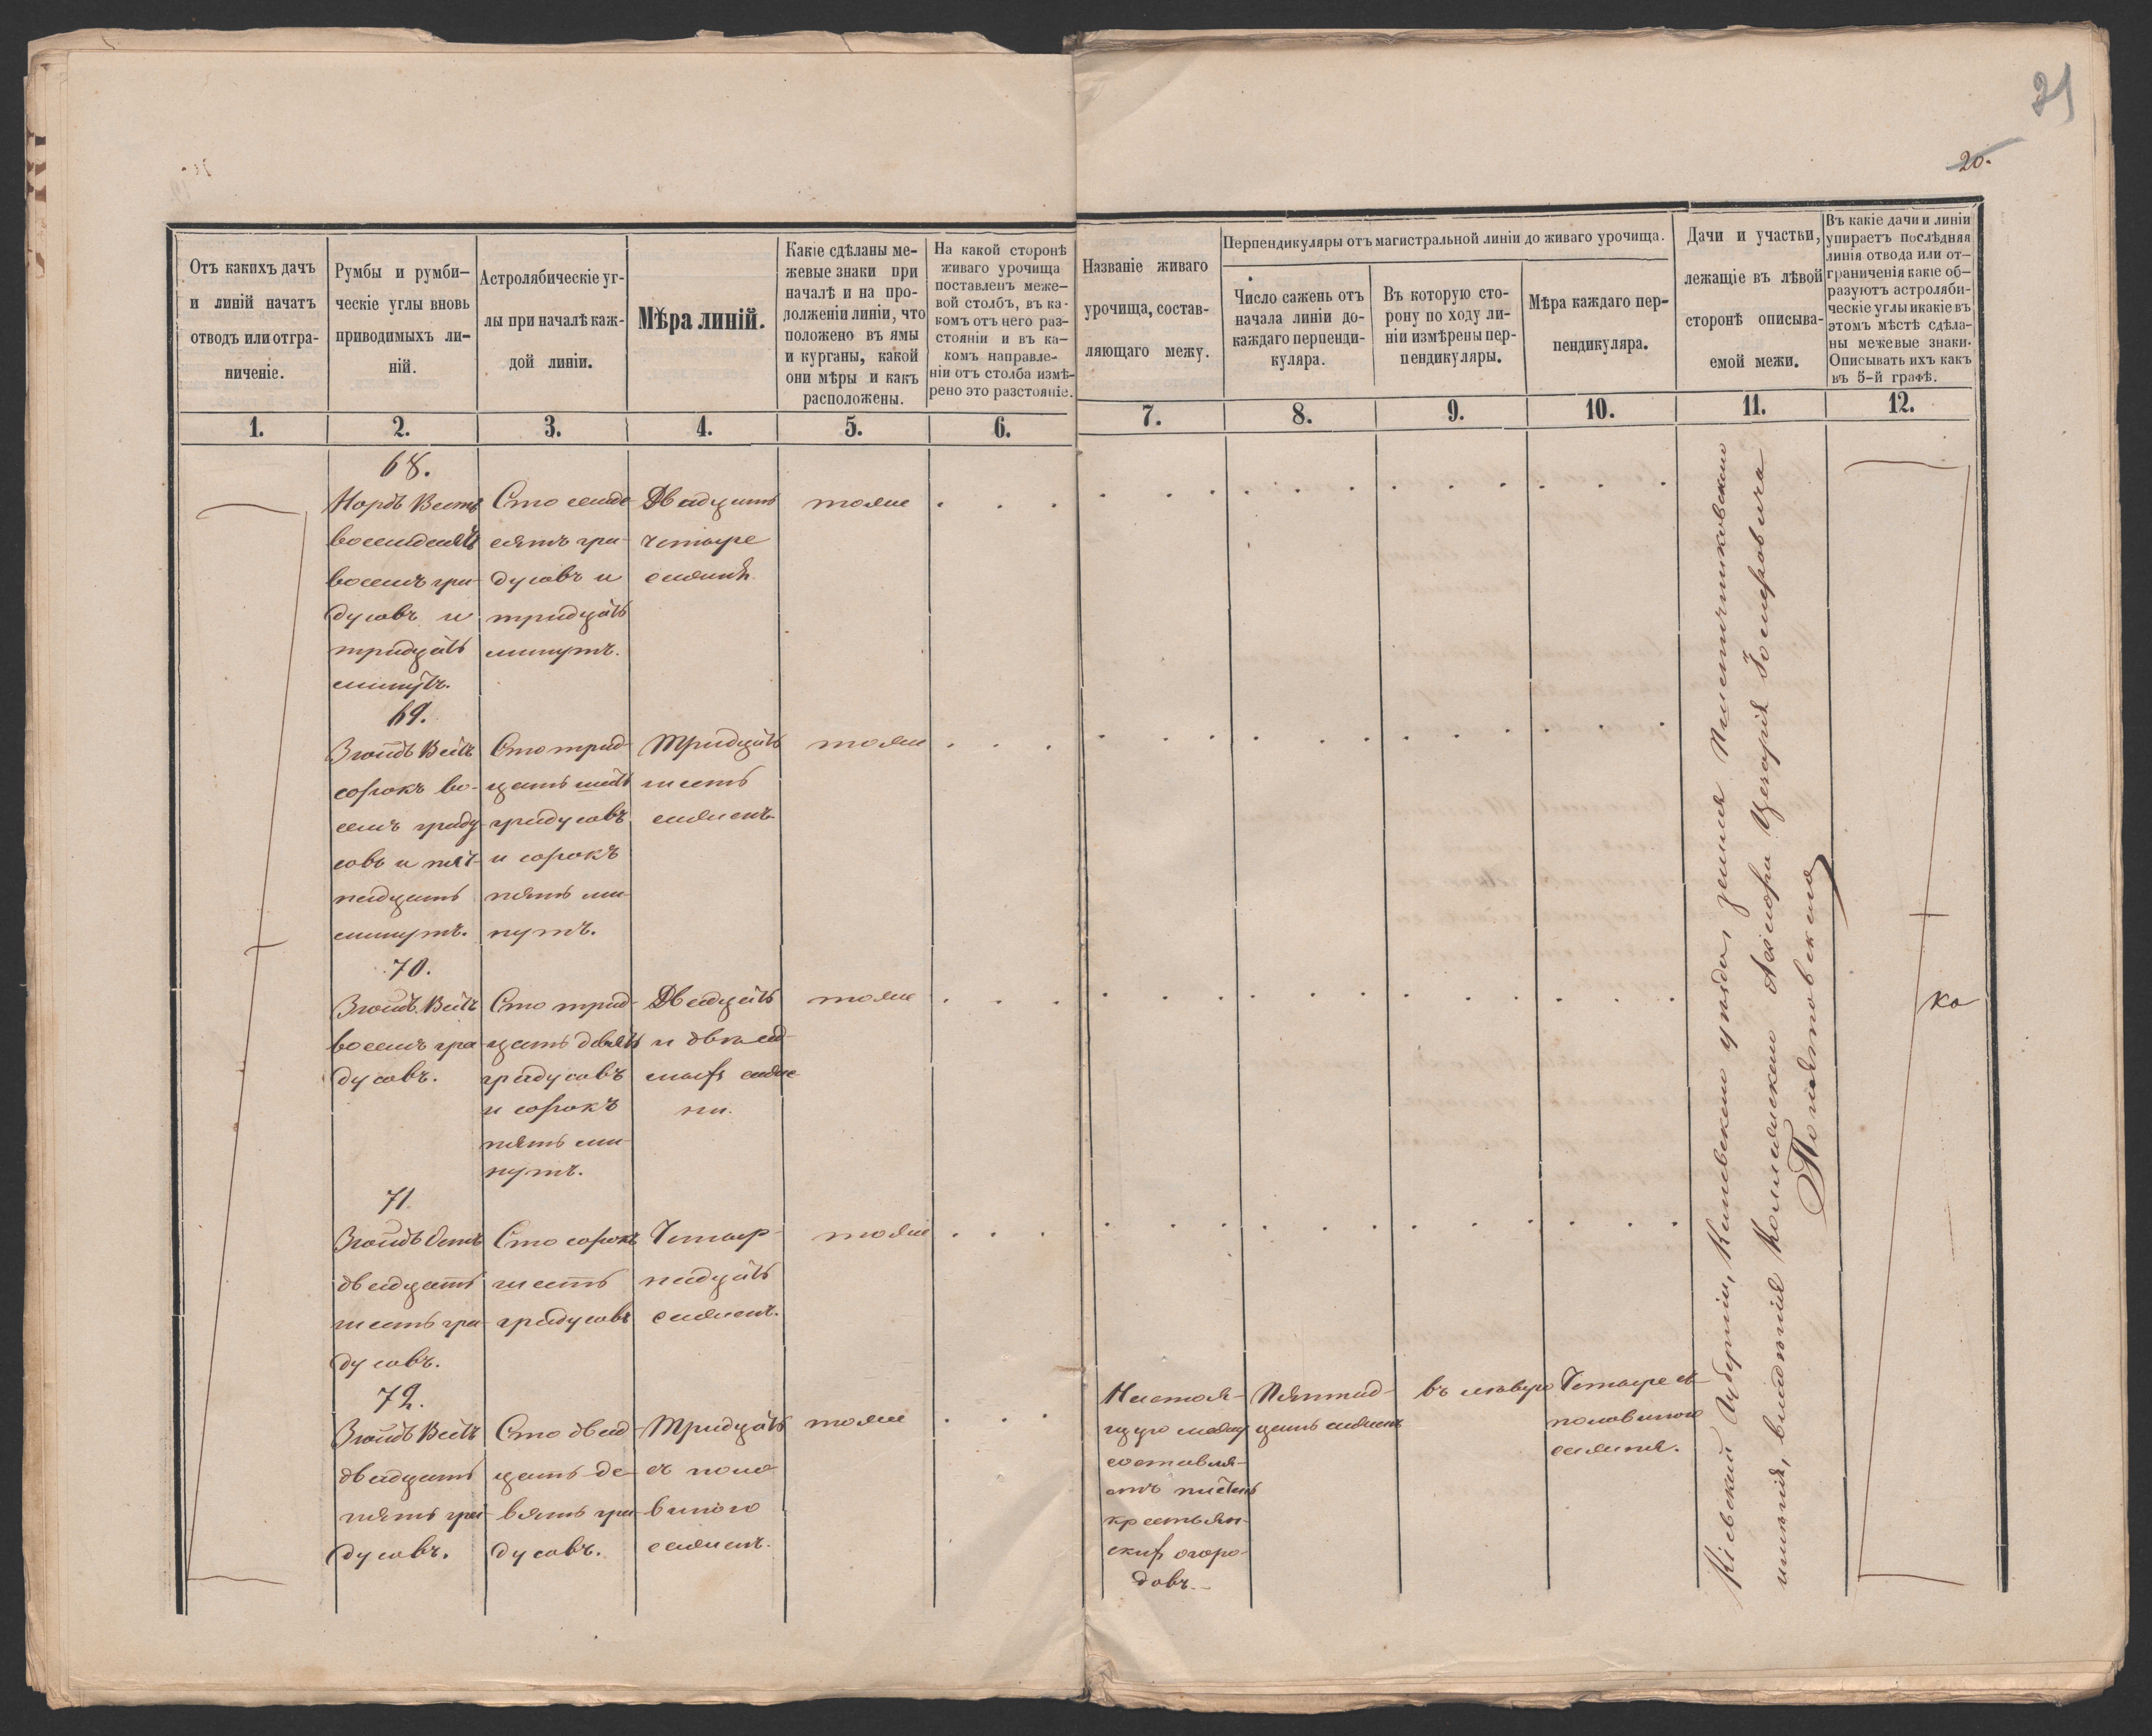 21
20.
Отъ какихъ дачъ
и линій начатъ
отводъ или отгра-
ниченіе.
Румбы и румби-
ческіе углы вновь
приводимыхъ ли-
ній.
Астролябическіе уг-
лы при началѣ каж-
дой линіи.
Мѣра линій.
Какіе сдѣланы ме-
жевые знаки при
началѣ и на про-
долженіи линіи, что
положено въ ямы
и курганы, какой
они мѣры и какъ
расположены.
На какой сторонѣ
живаго урочища
поставленъ меже-
вой столбъ, въ ка-
комъ отъ него раз-
стояніи и въ ка-
комъ направле-
ніи отъ столба измѣ-
рено это разстояніе.
Названіе живаго
урочища, состав-
ляющаго межу.
Перпендикуляры отъ магистральной линіи до живаго урочища.
Число сажень отъ
начала линіи до-
каждаго перпенди-
куляра.
Въ которую сто-
рону по ходу ли-
ніи измѣрены пер-
пендикуляры.
Мѣра каждаго пер-
пендикуляра.
Дачи и участки,
лежащіе въ лѣвой
сторонѣ описыва-
емой межи.
Въ какіе дачи и линіи
упираетъ послѣдняя
линія отвода или от-
граниченія какіе об-
разуютъ астроляби-
ческіе углы и какіе въ
этомъ мѣстѣ сдѣла-
ны межевые знаки.
Описывать ихъ какъ
въ 5-й графѣ.
1. 2. 3. 4. 5. 6. 7. 8. 9. 10. 11. 12.
68.
Нордъ Вестъ
восемдесятъ
восемъ гра-
дусовъ и
тридцать
минутъ.
Сто семде-
сятъ гра-
дусовъ и
тридцать
минутъ.
Двадцать
четыре
сажня
тоже
69.
Зюйдъ Вестъ
сорокъ во-
семъ граду-
совъ и пят-
надцать
минутъ.
Сто трид-
цать шесть
градусовъ
и сорокъ
пять ми-
нутъ.
Тридцать
шесть
саженъ
тоже
70.
Зюйдъ Вестъ
восемъ гра-
дусовъ.
Сто трид-
цать девять
градусовъ
и сорокъ
пять ми-
нутъ.
Двадцать
и двѣ
саже-
ни.
тоже
71.
Зюйдъ Остъ
двадцать
шесть гра-
дусовъ.
Сто сорокъ
шесть
градусовъ
Четыр-
надцать
саженъ.
тоже
72.
Зюйдъ Вестъ
двадцать
пять гра-
дусовъ.
Сто двад-
цать де-
вять гра-
дусовъ.
Тридцать
съ поло-
виною
саженъ.
тоже
Настоя-
щую межу
составля-
етъ
крестьян-
скихъ огоро-
довъ.
Пятнад-
цать саженъ
въ лѣвую
Четыре съ
половиною
сажня.
Кіевской Губерніи, Каневскаго уѣзда, земля
имѣнія, владѣнія
Понятовскаго
ко